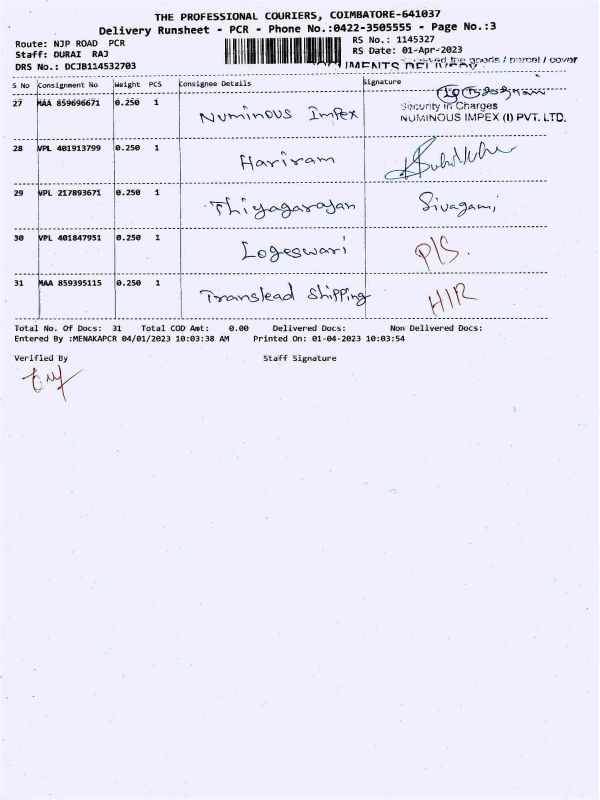 THE PROFESSIONAL COURIERS, COIMBATORE-641037
Delivery Runsheet - PCR - Phone No.:0422-3505555 - Page No.:3
Route: NJP ROAD PCR
RS No.: 1145327
Staff: DURAI RAJ
RS Date: 01-Apr-2023
DRS No.: DCJB114532703
goods / parcel / cover
S No Consignment No Weight PCS Consignee Details Signature
27 MAA 859696671 0.250 1 Numinous Impex
Security in Charges
NUMINOUS IMPEX (I) PVT. LTD.
28 VPL 401913799 0.250 1 Hariram
29 VPL 217893671 0.250 1 Thiyagarajan Sivagami
30 VPL 401847951 0.250 1 Logeswari P/S.
31 MAA 859395115 0.250 1 Translead Shipping H/R
Total No. Of Docs: 31 Total COD Amt: 0.00 Delivered Docs: Non Delivered Docs:
Entered By :MENAKAPCR 04/01/2023 10:03:38 AM Printed On: 01-04-2023 10:03:54
Verified By Staff Signature